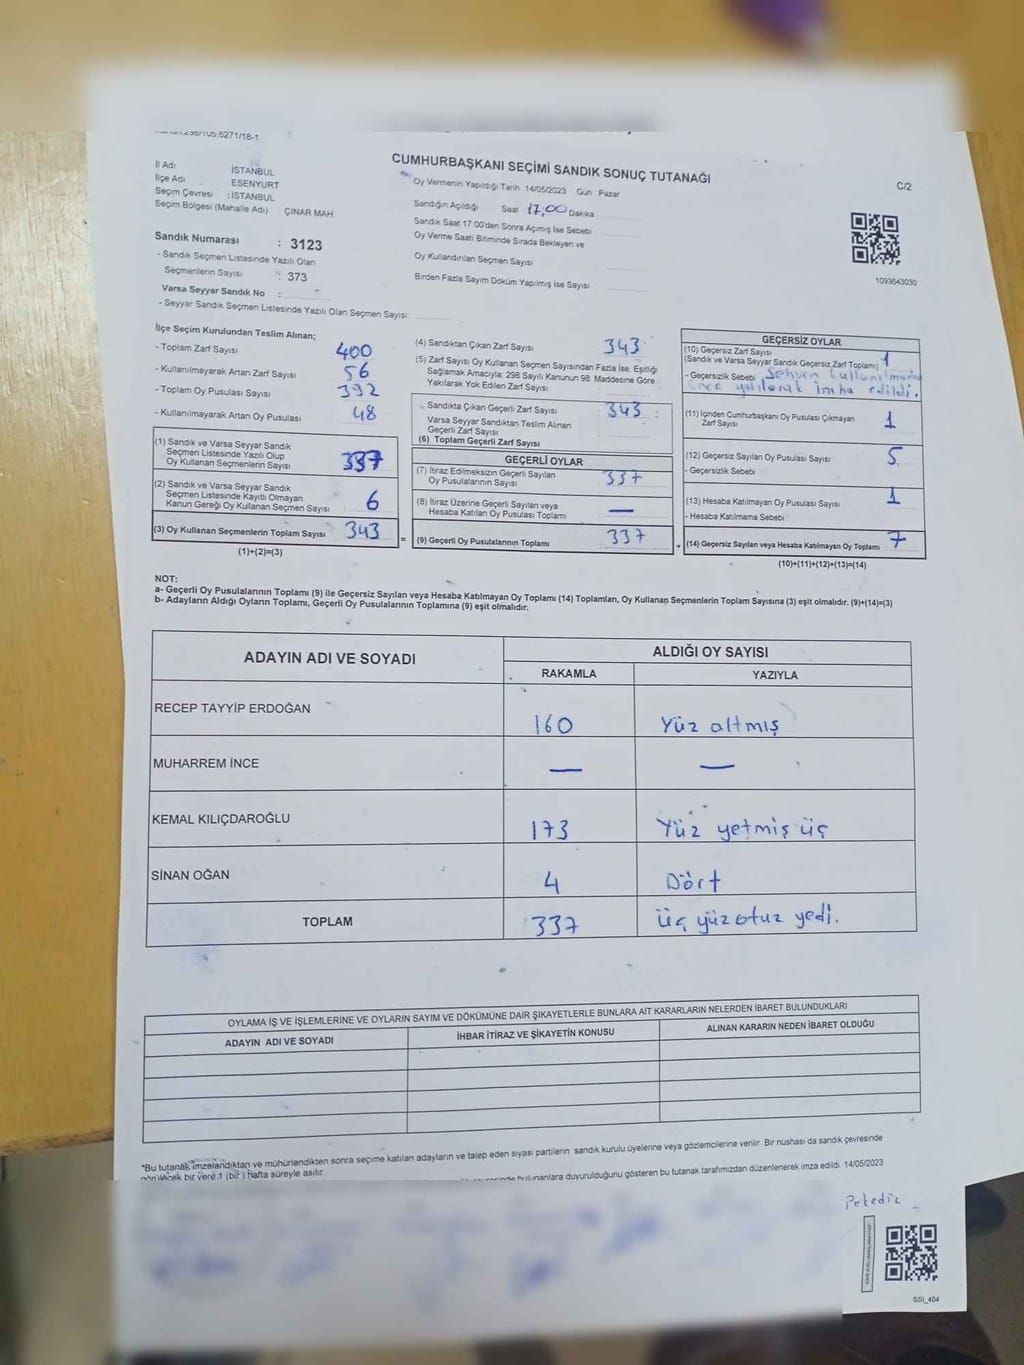 CUMHURBAŞKANI SEÇİMİ SANDIK SONUÇ TUTANAĞI
C/2
İl Adı İSTANBUL
İlçe Adı ESENYURT
Seçim Çevresi : İSTANBUL
Seçim Bölgesi (Mahalle Adı) ÇINAR MAH.
Oy Vermenin Yapıldığı Tarih 14/05/2023 Gün Pazar
Sandığın Açıldığı Saat 17,00 Dakika
Sandık Saat 17:00'den Sonra Açımış İse Sebebi
Oy Verme Saati Bitiminde Sırada Bekleyen ve
Oy Kullandırılan Seçmen Sayısı
Birden Fazla Sayım Döküm Yapılmış İse Sayısı
1093643030
Sandık Numarası : 3123
- Sandık Seçmen Listesinde Yazılı Olan
Seçmenlerin Sayısı : 373
Varsa Seyyar Sandık No : -
- Seyyar Sandık Seçmen Listesinde Yazılı Olan Seçmen Sayısı:
İlçe Seçim Kurulundan Teslim Alınan;
- Toplam Zarf Sayısı 400
- Kullanılmayarak Artan Zarf Sayısı 56
- Toplam Oy Pusulası Sayısı 392
- Kullanılmayarak Artan Oy Pusulası 48
(1) Sandık ve Varsa Seyyar Sandık
Seçmen Listesinde Yazılı Olup
Oy Kullanan Seçmenlerin Sayısı 337
(2) Sandık ve Varsa Seyyar Sandık
Seçmen Listesinde Kayıtlı Olmayan
Kanun Gereği Oy Kullanan Seçmen Sayısı 6
(3) Oy Kullanan Seçmenlerin Toplam Sayısı 343
(1)+(2)=(3)
(4) Sandıktan Çıkan Zarf Sayısı 343
(5) Zarf Sayısı Oy Kullanan Seçmen Sayısından Fazla İse, Eşitliği
Sağlamak Amacıyla, 298 Sayılı Kanunun 98. Maddesine Göre
Yakılarak Yok Edilen Zarf Sayısı
Sandıkta Çıkan Geçerli Zarf Sayısı 343
Varsa Seyyar Sandıktan Teslim Alınan
Geçerli Zarf Sayısı
(6) Toplam Geçerli Zarf Sayısı
GEÇERLİ OYLAR
(7) İtiraz Edilmeksizin Geçerli Sayılan
Oy Pusulalarının Sayısı 337
(8) İtiraz Üzerine Geçerli Sayılan veya
Hesaba Katılan Oy Pusulası Toplamı —
= (9) Geçerli Oy Pusulalarının Toplamı 337
GEÇERSİZ OYLAR
(10) Geçersiz Zarf Sayısı
(Sandık ve Varsa Seyyar Sandık Geçersiz Zarf Toplamı) 1
- Geçersizlik Sebebi Sehven kullanılmadan
önce yırtılarak imha edildi.
(11) İçinden Cumhurbaşkanı Oy Pusulası Çıkmayan
Zarf Sayısı 1
(12) Geçersiz Sayılan Oy Pusulası Sayısı 5
- Geçersizlik Sebebi
(13) Hesaba Katılmayan Oy Pusulası Sayısı 1
- Hesaba Katılmama Sebebi
+ (14) Geçersiz Sayılan veya Hesaba Katılmayan Oy Toplamı 7
(10)+(11)+(12)+(13)=(14)
NOT:
a- Geçerli Oy Pusulalarının Toplamı (9) ile Geçersiz Sayılan veya Hesaba Katılmayan Oy Toplamı (14) Toplamları, Oy Kullanan Seçmenlerin Toplam Sayısına (3) eşit olmalıdır. (9)+(14)=(3)
b- Adayların Aldığı Oyların Toplamı, Geçerli Oy Pusulalarının Toplamına (9) eşit olmalıdır.
ADAYIN ADI VE SOYADI ALDIĞI OY SAYISI
RAKAMLA YAZIYLA
RECEP TAYYİP ERDOĞAN 160 Yüz altmış
MUHARREM İNCE — —
KEMAL KILIÇDAROĞLU 173 Yüz yetmiş üç
SİNAN OĞAN 4 Dört
TOPLAM 337 Üç yüz otuz yedi.
OYLAMA İŞ VE İŞLEMLERİNE VE OYLARIN SAYIM VE DÖKÜMÜNE DAİR ŞİKAYETLERLE BUNLARA AİT KARARLARIN NELERDEN İBARET BULUNDUKLARI
ADAYIN ADI VE SOYADI İHBAR İTİRAZ VE ŞİKAYETİN KONUSU ALINAN KARARIN NEDEN İBARET OLDUĞU
*Bu tutanak imzalandıktan ve mühürlendikten sonra seçime katılan adayların ve talep eden siyasi partilerin sandık kurulu üyelerine veya gözlemcilerine verilir. Bir nüshası da sandık çevresinde
görülecek bir yere 1 (bir) hafta süreyle asılır.
bulunanlara duyurulduğunu gösteren bu tutanak tarafımızdan düzenlenerek imza edildi. 14/05/2023
SSI_404